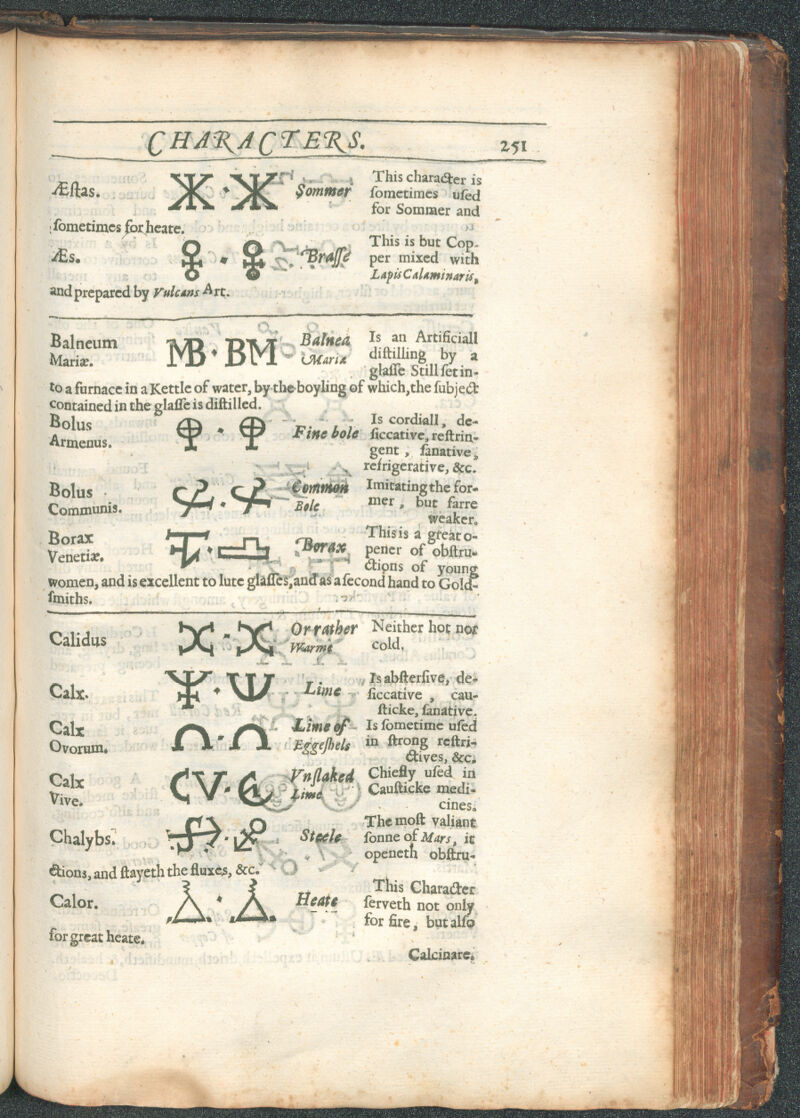 CHARACTERS. 251
Æſtas. Sommer This character is
ſometimes uſed
for Sommer and
ſometimes for heate.
Æs. Braſſe This is but Cop-
per mixed with
Lapis Calaminaris,
and prepared by Vulcans Art.
Balneum Mariæ. MB · BM Balnea Maria Is an Artificiall
diſtilling by a
glaſſe Still ſet in-
to a furnace in a Kettle of water, by the boyling of which, the ſubject
contained in the glaſſe is diſtilled.
Bolus Armenus. Fine bole Is cordiall, de-
ſiccative, reſtrin-
gent, ſanative,
refrigerative, &c.
Bolus Communis. Common Bole Imitating the for-
mer, but farre
weaker.
Borax Venetiæ. Borax This is a great o-
pener of obſtru-
ctions of young
women, and is excellent to lute glaſſes, and as a ſecond hand to Gold-
ſmiths.
Calidus Or rather Warme Neither hot nor
cold.
Calx. Lime Is abſterſive, de-
ſiccative, cau-
ſticke, ſanative.
Calx Ovorum. Lime of Eggeſhels Is ſometime uſed
in ſtrong reſtri-
ctives, &c.
Calx Vive. CV · Vnſlaked Lime Chiefly uſed in
Cauſticke medi-
cines.
Chalybs. Steele The moſt valiant
ſonne of Mars, it
openeth obſtru-
ctions, and ſtayeth the fluxes, &c.
Calor. Heate This Character
ſerveth not only
for fire, but alſo
for great heate.
Calcinare.